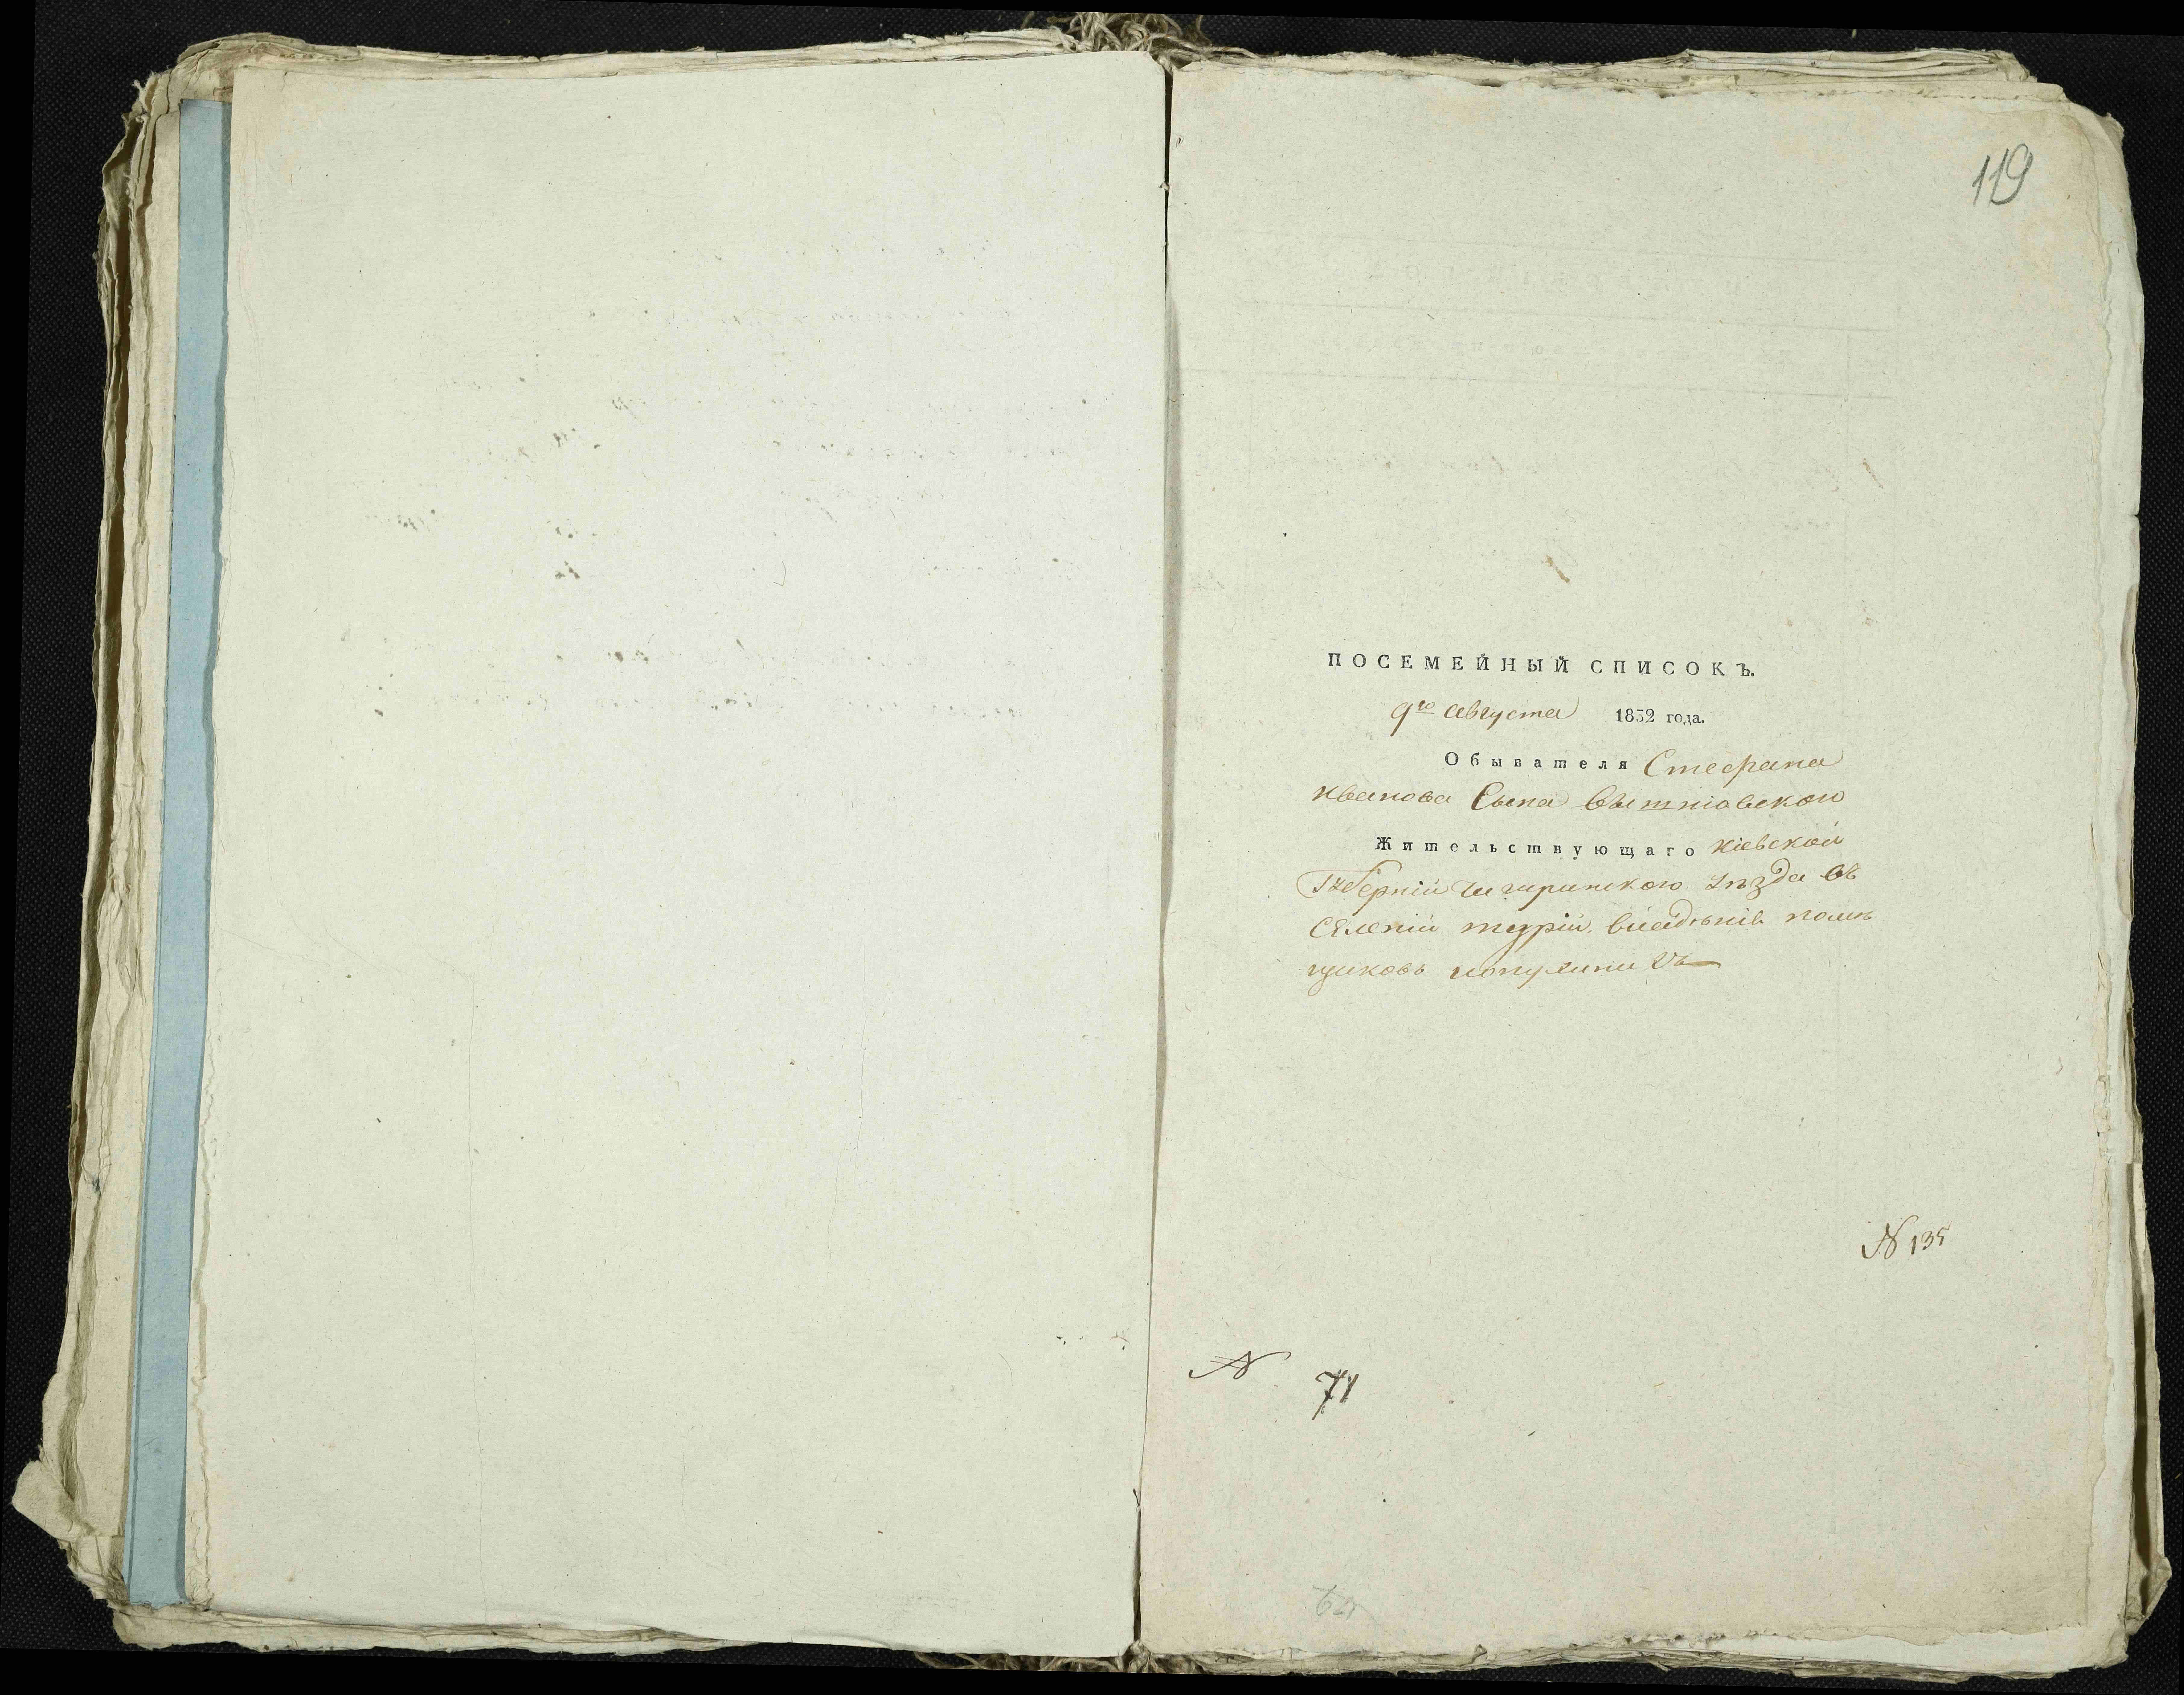 119
ПОСЕМЕЙНЫЙ СПИСОКЪ.
9го августа 1832 года.
Обывателя Стефана
иванова Сына
Жительствующаго Кіевской
Губерніи Чигиринского уѣзда въ
Селеніи турій, владѣнів помѣ
щиковъ
N 135
N 71